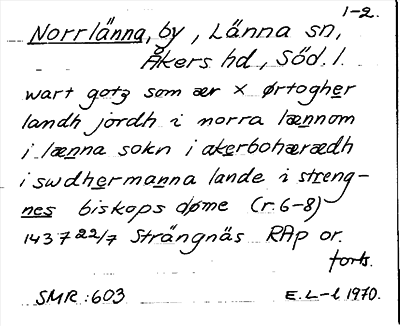 1-2.
Norrlänna, by, Länna sn,
Åkers hd, Söd. l.
wart gotz som ær x ørtogher
landh jordh i norra lænnom
i lænna sokn i akerbohærædh
i swdhermanna lande i streng-
nes biskops døme (r. 6-8)
1437 22/7 Strängnäs RAp or.
forts.
SMR: 603 E. L-l 1970.